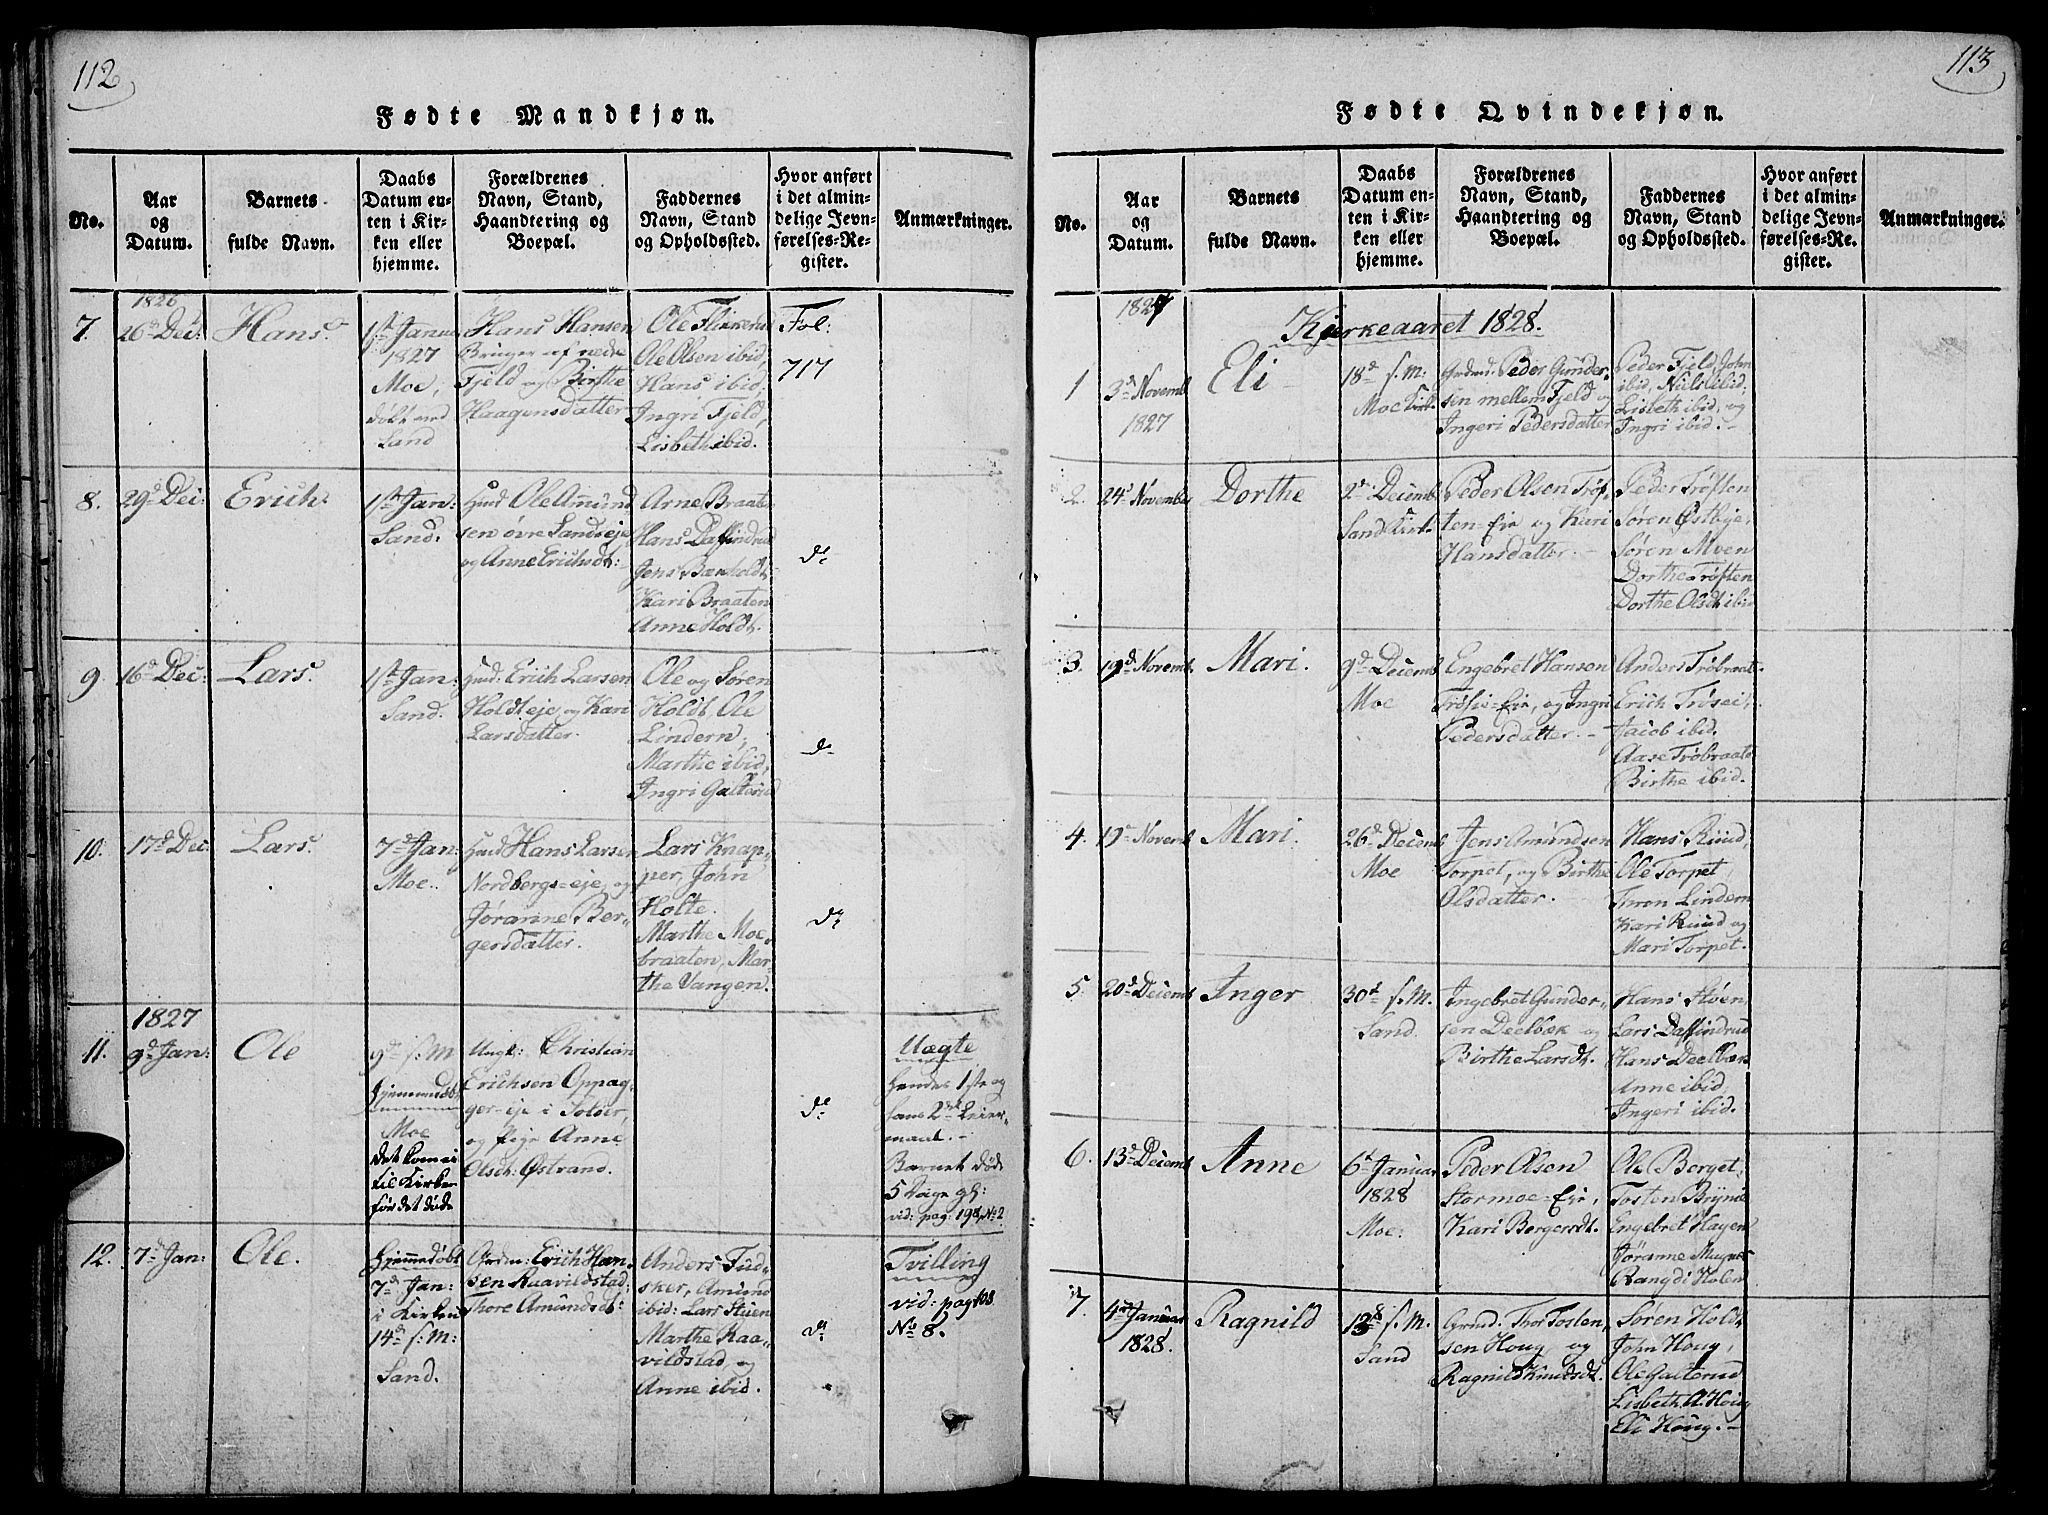 112
Fødte Mandkjøn.
No.
Aar
og
Datum.
Barnets
fulde Navn.
Daabs
Datum en-
ten i Kir-
ken eller
hjemme.
Forældrenes
Navn, Stand,
Haandtering og
Boepæl.
Faddernes
Navn, Stand
og Opholdssted.
Hvor anført
i det almin-
delige Jevn-
førelses-Re-
gister.
Anmærkninger.
7.
1826
26 Dec:
Hans.
1ste Janua
1827
Moe,
døbt med
Sand
Hans Hansen
Bruger af nedre
Fjeld og Birthe
Haagensdatter
Ole Flikkerud
Ole Olsen ibid,
Hans ibid,
Ingri Fjeld,
Lisbeth ibid.
Fol:
717
8.
29d Dec:
Erich.
1ste Jan:
Sand.
Huusd Ole Amund
sen øvre Sandseje
og Anne Erichsdt:
Arne Braaten
Hans Daffindrud
Jens Bækholdt.
Kari Braaten
Anne Holdt.
do
9.
16d Dec:
Lars.
1ste Jan:
Sand.
Husd: Erich Larsen
Holdteje og Kari
Larsdatter.
Ole og Søren
Holdt, Ole
Lindern,
Marthe ibid,
Ingri Galterud
do
10.
17d Dec:
Lars.
7d Jan:
Moe.
Husd Hans Larsen
Nordbergs=eje, og
Jøranne Ber-
gersdatter.
Lars Knap-
per, John
Holte.
Marthe Moe-
braaten, Mar-
the Vangen.
do
11.
1827
9d Jan:
Ole
9d s: M
hjemmedøbt
Moe
det kom ei
til Kirken
før det døde
Ungk: Christian
Erichsen Oppag-
ger-eje i Soløer,
og Pige Anne
Olsdt: Østrand.
do
Uægte
hendes 1ste og
hans 2det Leier-
maal.
Barnet døde
5 Dage gl:
vid: pag: 198, No 2
12.
7d Jan:
Ole.
Hjemmedøbt
7d Jan:
i Kirken
14d s: M:
Sand.
Grdm: Erich Han-
sen Raavildstad,
Thore Amundsdt:
Anders Tud-
sker, Amund
ibid: Lars Stuen
Marthe Raa-
vildstad, og
Anne ibid.
do
Tvilling
vid: pag 108
No 8.
113
Fødte Qvindekjøn.
No.
Aar
og
Datum.
Barnets
fulde Navn.
Daabs
Datum en-
ten i Kir-
ken eller
hjemme.
Forældrenes
Navn, Stand,
Haandtering og
Boepæl.
Faddernes
Navn, Stand
og Opholdssted.
Hvor anført
i det almin-
delige Jevn-
førelses-Re-
gister.
Anmærkninger.
1827
Kirkeaaret 1828.
1
3d Novemb
1827
Eli
18d s. M:
Moe Kirk.
Grdmd: Peder Gunder-
sen mellem Fjeld og
Ingeri Pedersdatter
Peder Fjeld, John
ibid, Niels ibid,
Lisbeth ibid, og
Ingri ibid.
2.
24d November
Dorthe
2d Decemb
Sand Kirk.
Peder Olsen Trøf-
ten=Eie og Kari
Hansdatter.
Peder Trøften
Søren Østbye,
Søren Moen
Dorthe Trøften
Dorthe Olsdt ibid
3.
19d Novemb.
Mari.
9d Decemb
Moe
Engebret Hansen
Trøsei=Eie, og Ingri
Pedersdatter.
Anders Trøbraat-
Erich Trøsei,
Jacob ibid.
Aase Trøbraate
Birthe ibid.
4.
19d Novemb
Mari.
26d Decemb
Moe
Jens Amundsen
Torpet, og Birthe
Olsdatter.
Hans Ruud,
Ole Torpet,
Thron Lindern
Kari Ruud og
Mari Torpet.
5.
20d Decemb
Inger
30d s. M.
Sand.
Ingebret Gunder-
sen Deelbæk og
Birthe Larsdt.
Hans Støen,
Lars Daffindrud
Hans Deelbæk
Anne ibid,
Ingeri ibid.
6.
13d Decemb
Anne
6d Januar
1828
Moe:
Peder Olsen
Stormoe=Eie,
Kari Bergersdt.
Ole Berget,
Tosten Brynie
Engebret Hagen
Jøranne Magnes
Rangdi Holen
7.
4d Januar
1828.
Ragnild
13d s. M.
Sand
Grmd. Thor Tosten-
sen Houg og
Ragnild Knudsdt.
Søren Hold-
John Houg,
Ole Galterud
Lisbeth A. Houg
Eli Houg.